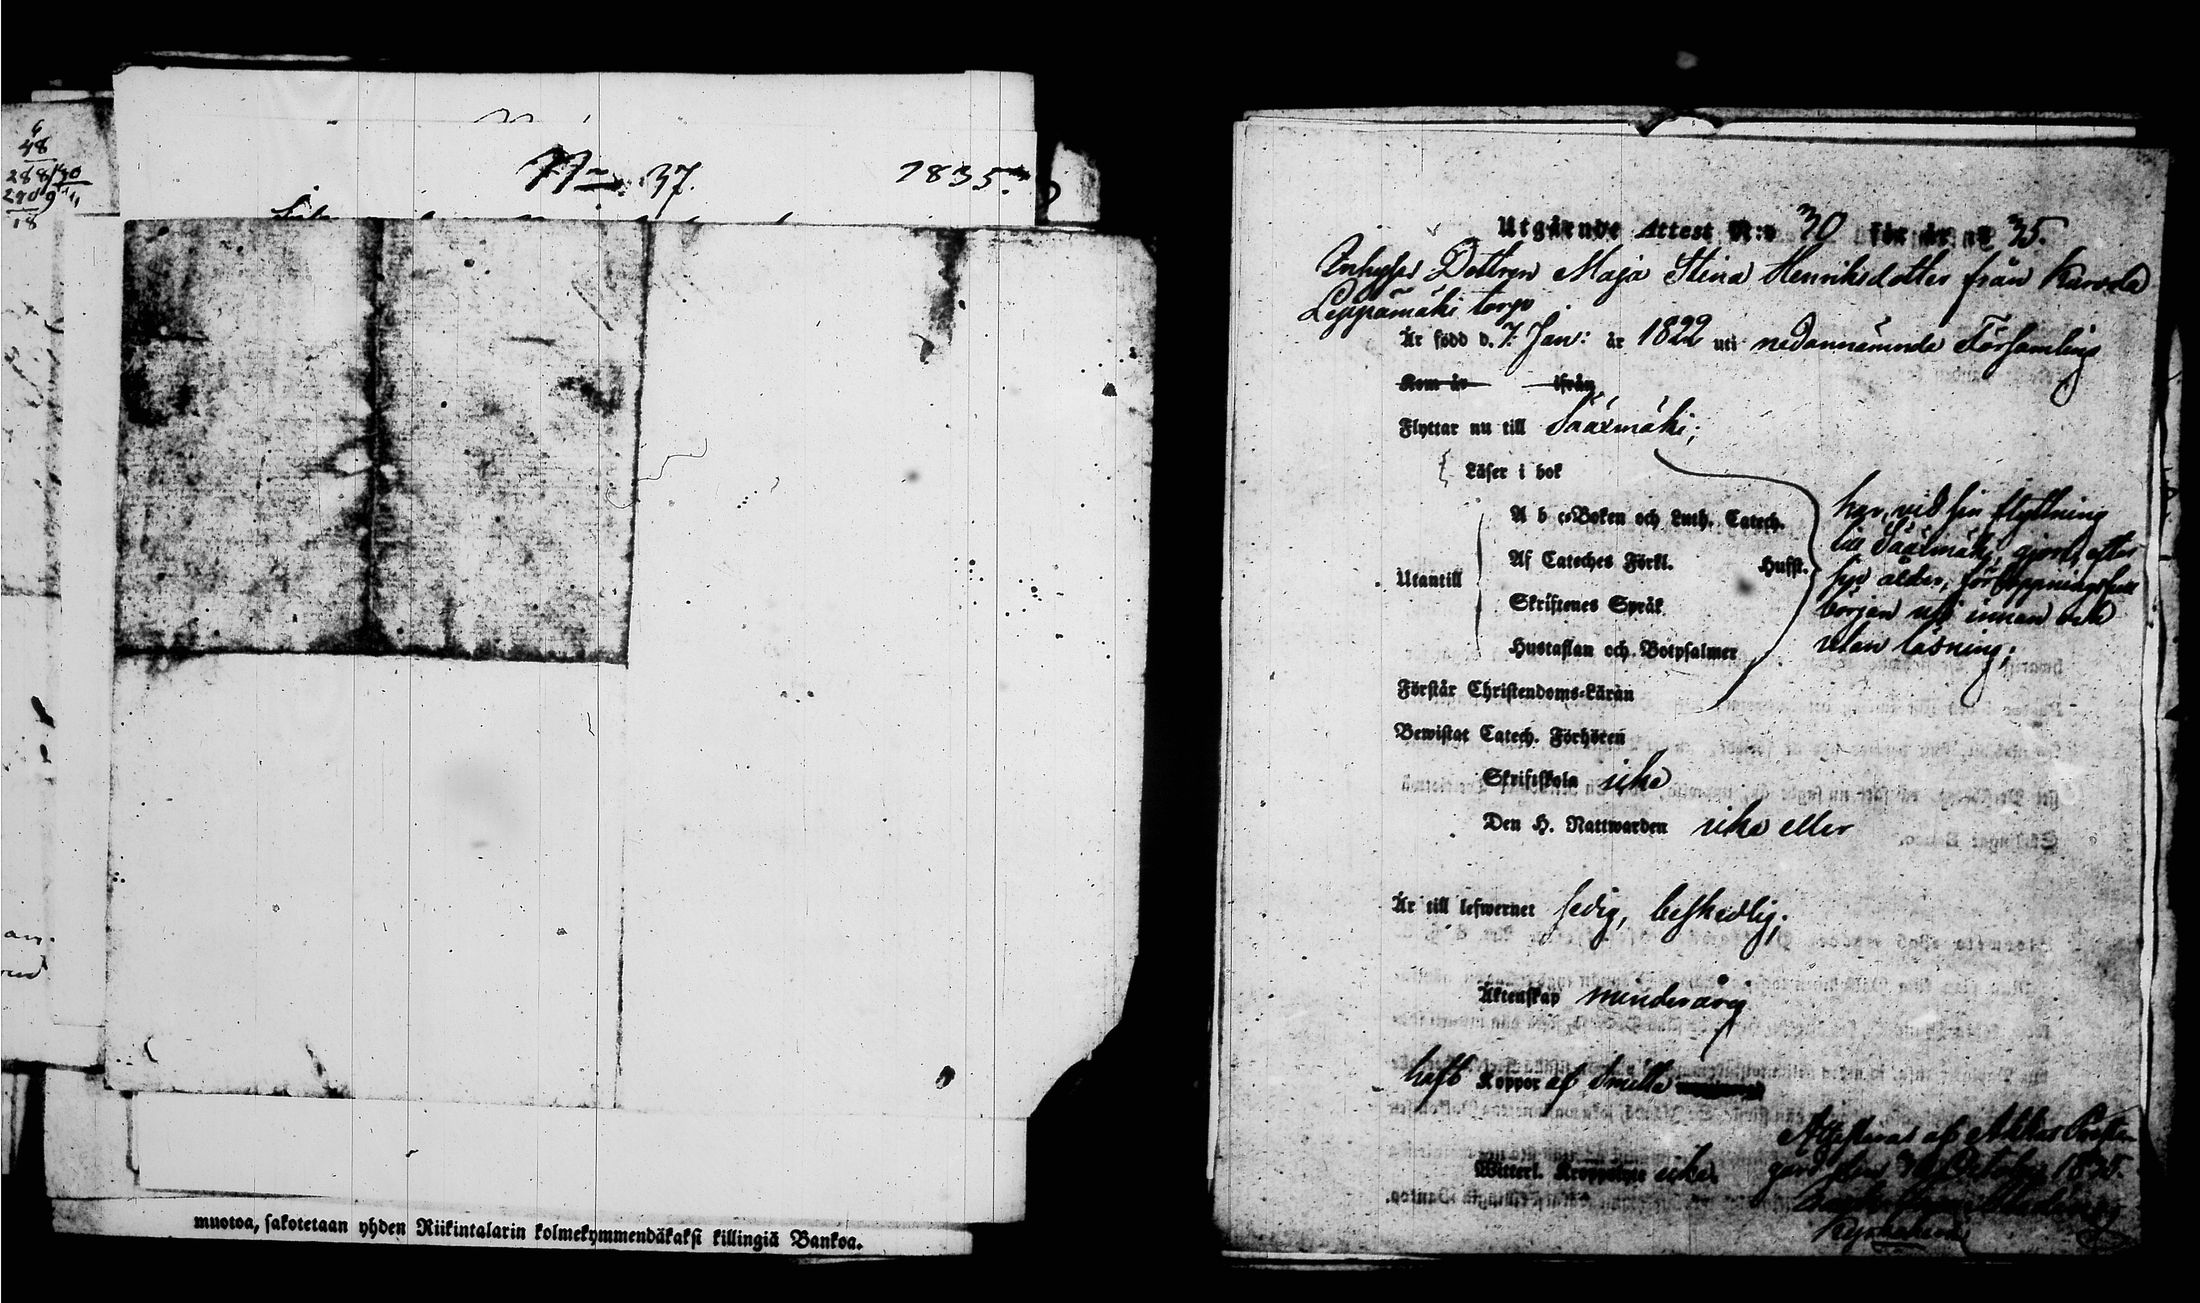 6
48
288/30
290 9
18
an.
N:o 37. 1835.
muotoa, sakotetaan yhden Riikintalarin kolmekymmendäkaksi killingiä Bankoa.
Utgående Attest N:o 30 för år 1835.
Inhyses Dottren Maja Stina Henriksdotter från Karvola
Leppämäki torp
Är född d. 7 Jan: år 1822 uti nedannämnde Församling
Kom år ifrån
Flyttar nu till Sääxmäki;
Läser i bok
A b c-Boken och Luth. Catech.
Af Cateches Förkl. Hufst.
Utantill
Skriftenes Språk
Hustaflan och Botpsalmer
har, vid sin flyttning
till Sääxmäki, gjort, efter
sin ålder, förhoppningsfull
början uti innan och
utan läsning;
Förstår Christendoms-Läran
Bewistat Catech. Förhören
Skriftskola icke
Den H. Nattwarden icke eller
Är till lefwernet sedig, beskedlig;
Äktenskap minderårig
haft Koppor af Smitta
Witterl. icke.
Attesteras af Akkas Prestegård den 30 October 1835.